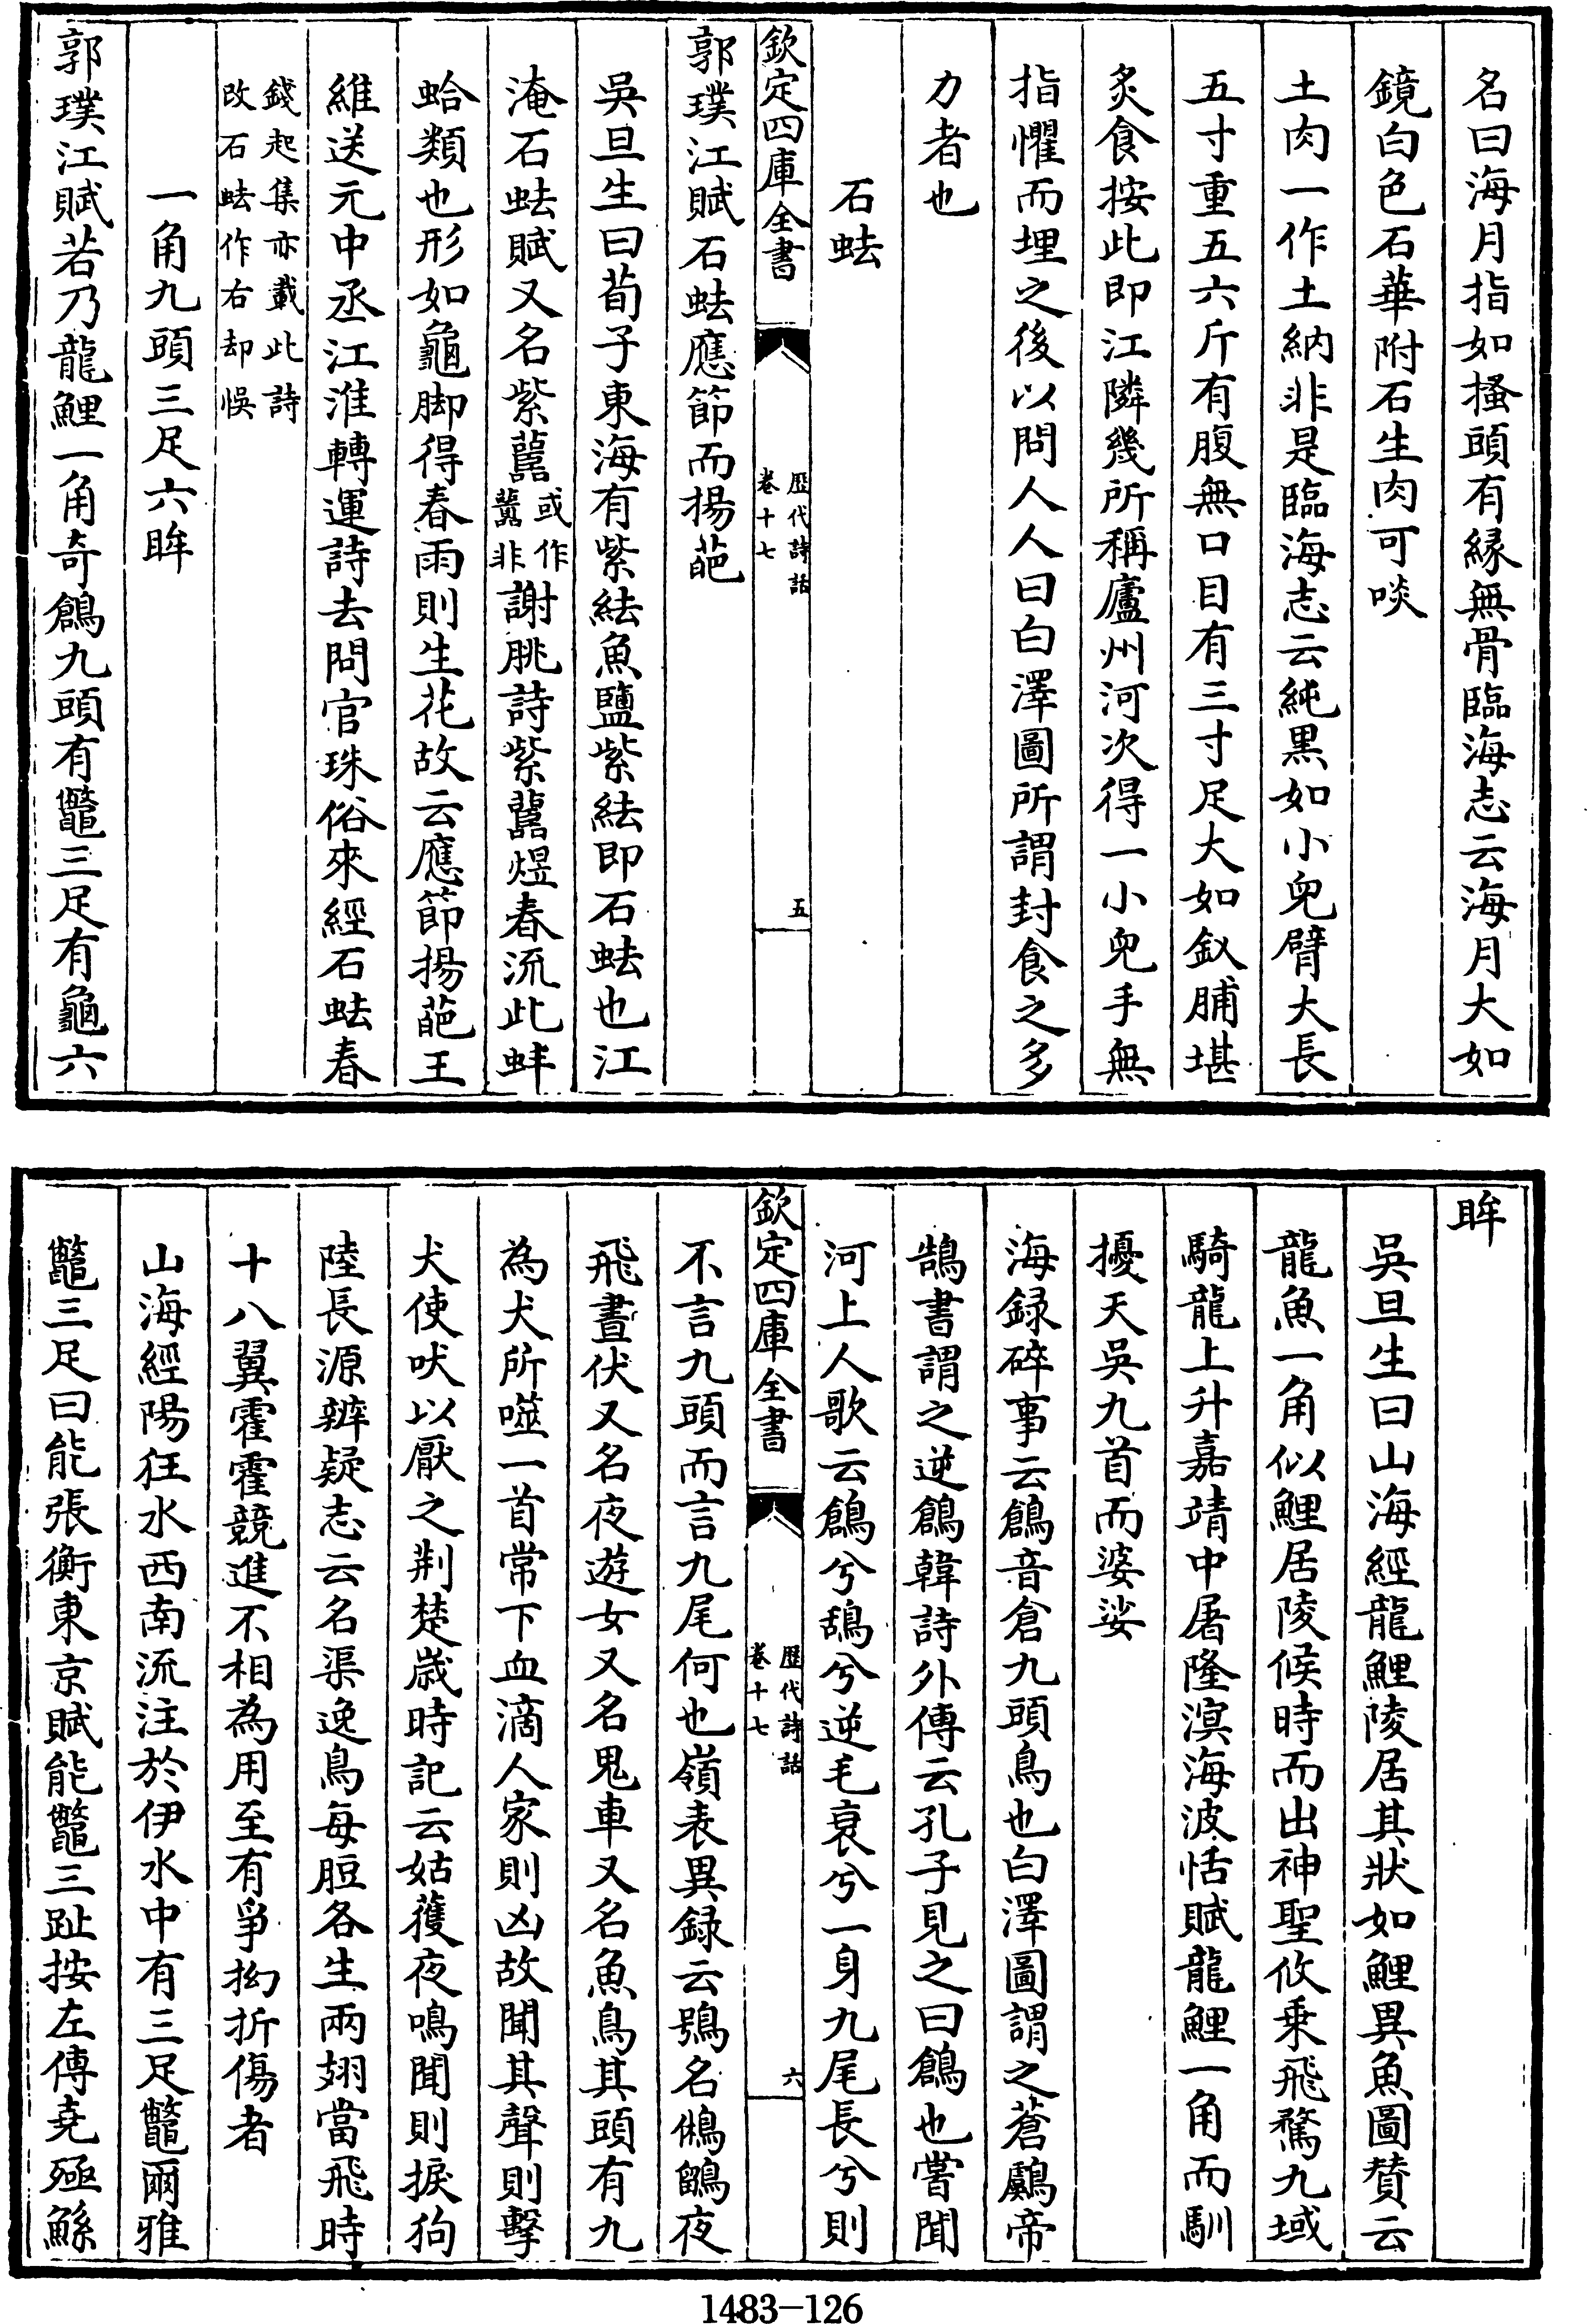 名曰海月指如搔頭有緣無骨臨海志云海月大如
鏡白色石華附石生肉可啖
土肉一作土納非是臨海志云純黒如小兒臂大長
五寸重五六斤有腹無口目有三寸足大如釵脯堪
炙食按此即江隣幾所稱廬州河次得一小兒手無
指懼而埋之後以問人人曰白澤圖所謂封食之多
力者也
石蚨
欽定四庫全書
歴代詩話
卷十七
五
郭璞江賦石蚨應節而揚葩
吳旦生曰荀子東海有紫紶魚鹽紫紶即石蚨也江
淹石蚨賦又名紫䕫或作
非謝朓詩紫煜春流此蚌
蛤類也形如龜脚得春雨則生花故云應節揚葩王
維送元中丞江淮轉運詩去問官珠俗來經石蚨春
錢起集亦載此詩
改石蚨作右却悞
一角九頭三足六眸
郭璞江賦若乃龍鯉一角奇鶬九頭有鼈三足有龜六
眸
吳旦生曰山海經龍鯉陵居其狀如鯉異魚圖贊云
龍魚一角似鯉居陵候時而出神聖攸乗飛騖九域
騎龍上升嘉靖中屠隆溟海波恬賦龍鯉一角而馴
擾天吳九首而婆娑
海録碎事云鶬音倉九頭鳥也白澤圖謂之蒼鸆帝
鵠書謂之逆鶬韓詩外傳云孔子見之曰鶬也嘗聞
河上人歌云鶬兮鴰兮逆毛衰兮一身九尾長兮則
欽定四庫全書
歴代詩話
卷十七
六
不言九頭而言九尾何也嶺表異録云鴞名鵂鶹夜
飛晝伏又名夜遊女又名鬼車又名魚鳥其頭有九
為犬所噬一首常下血滴人家則凶故聞其聲則擊
犬使吠以厭之荆楚嵗時記云姑獲夜鳴聞則捩狗
陸長源辨疑志云名渠逸鳥每脰各生兩翅當飛時
十八翼霍霍競進不相為用至有爭拗折傷者
山海經陽狂水西南流注於伊水中有三足鼈爾雅
鼈三足曰能張衡東京賦能鼈三趾按左傳堯殛鯀
1483-126